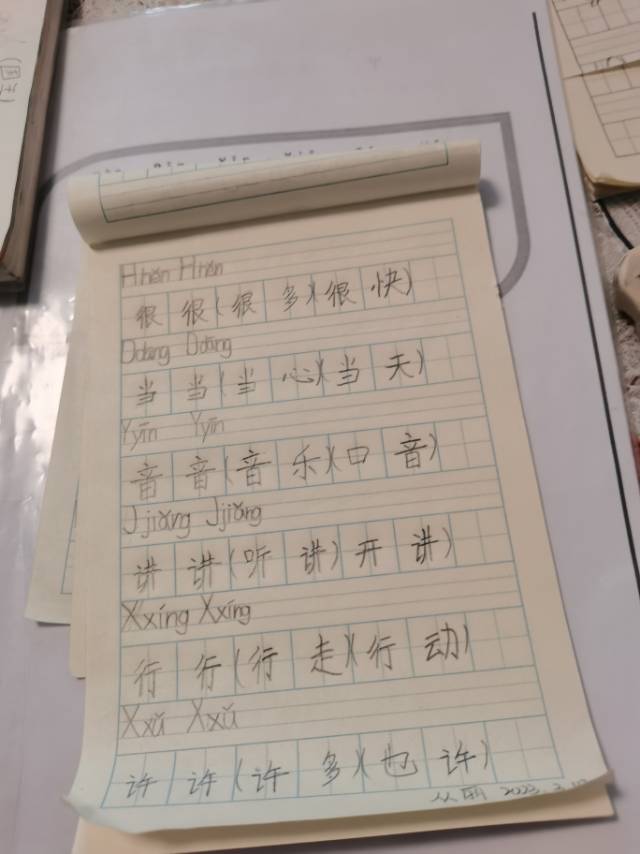 Hhěn Hhěn
很 很(很 多)(很 快)
Ddāng Ddāng
当 当(当 心)(当 天)
Yyīn Yyīn
音 音(音 乐)(口 音)
Jjiǎng Jjiǎng
讲 讲(听 讲)开 讲)
Xxíng Xxíng
行 行(行 走)(行 动)
Xxǔ Xxǔ
许 许(许 多)(也 许)
2023.